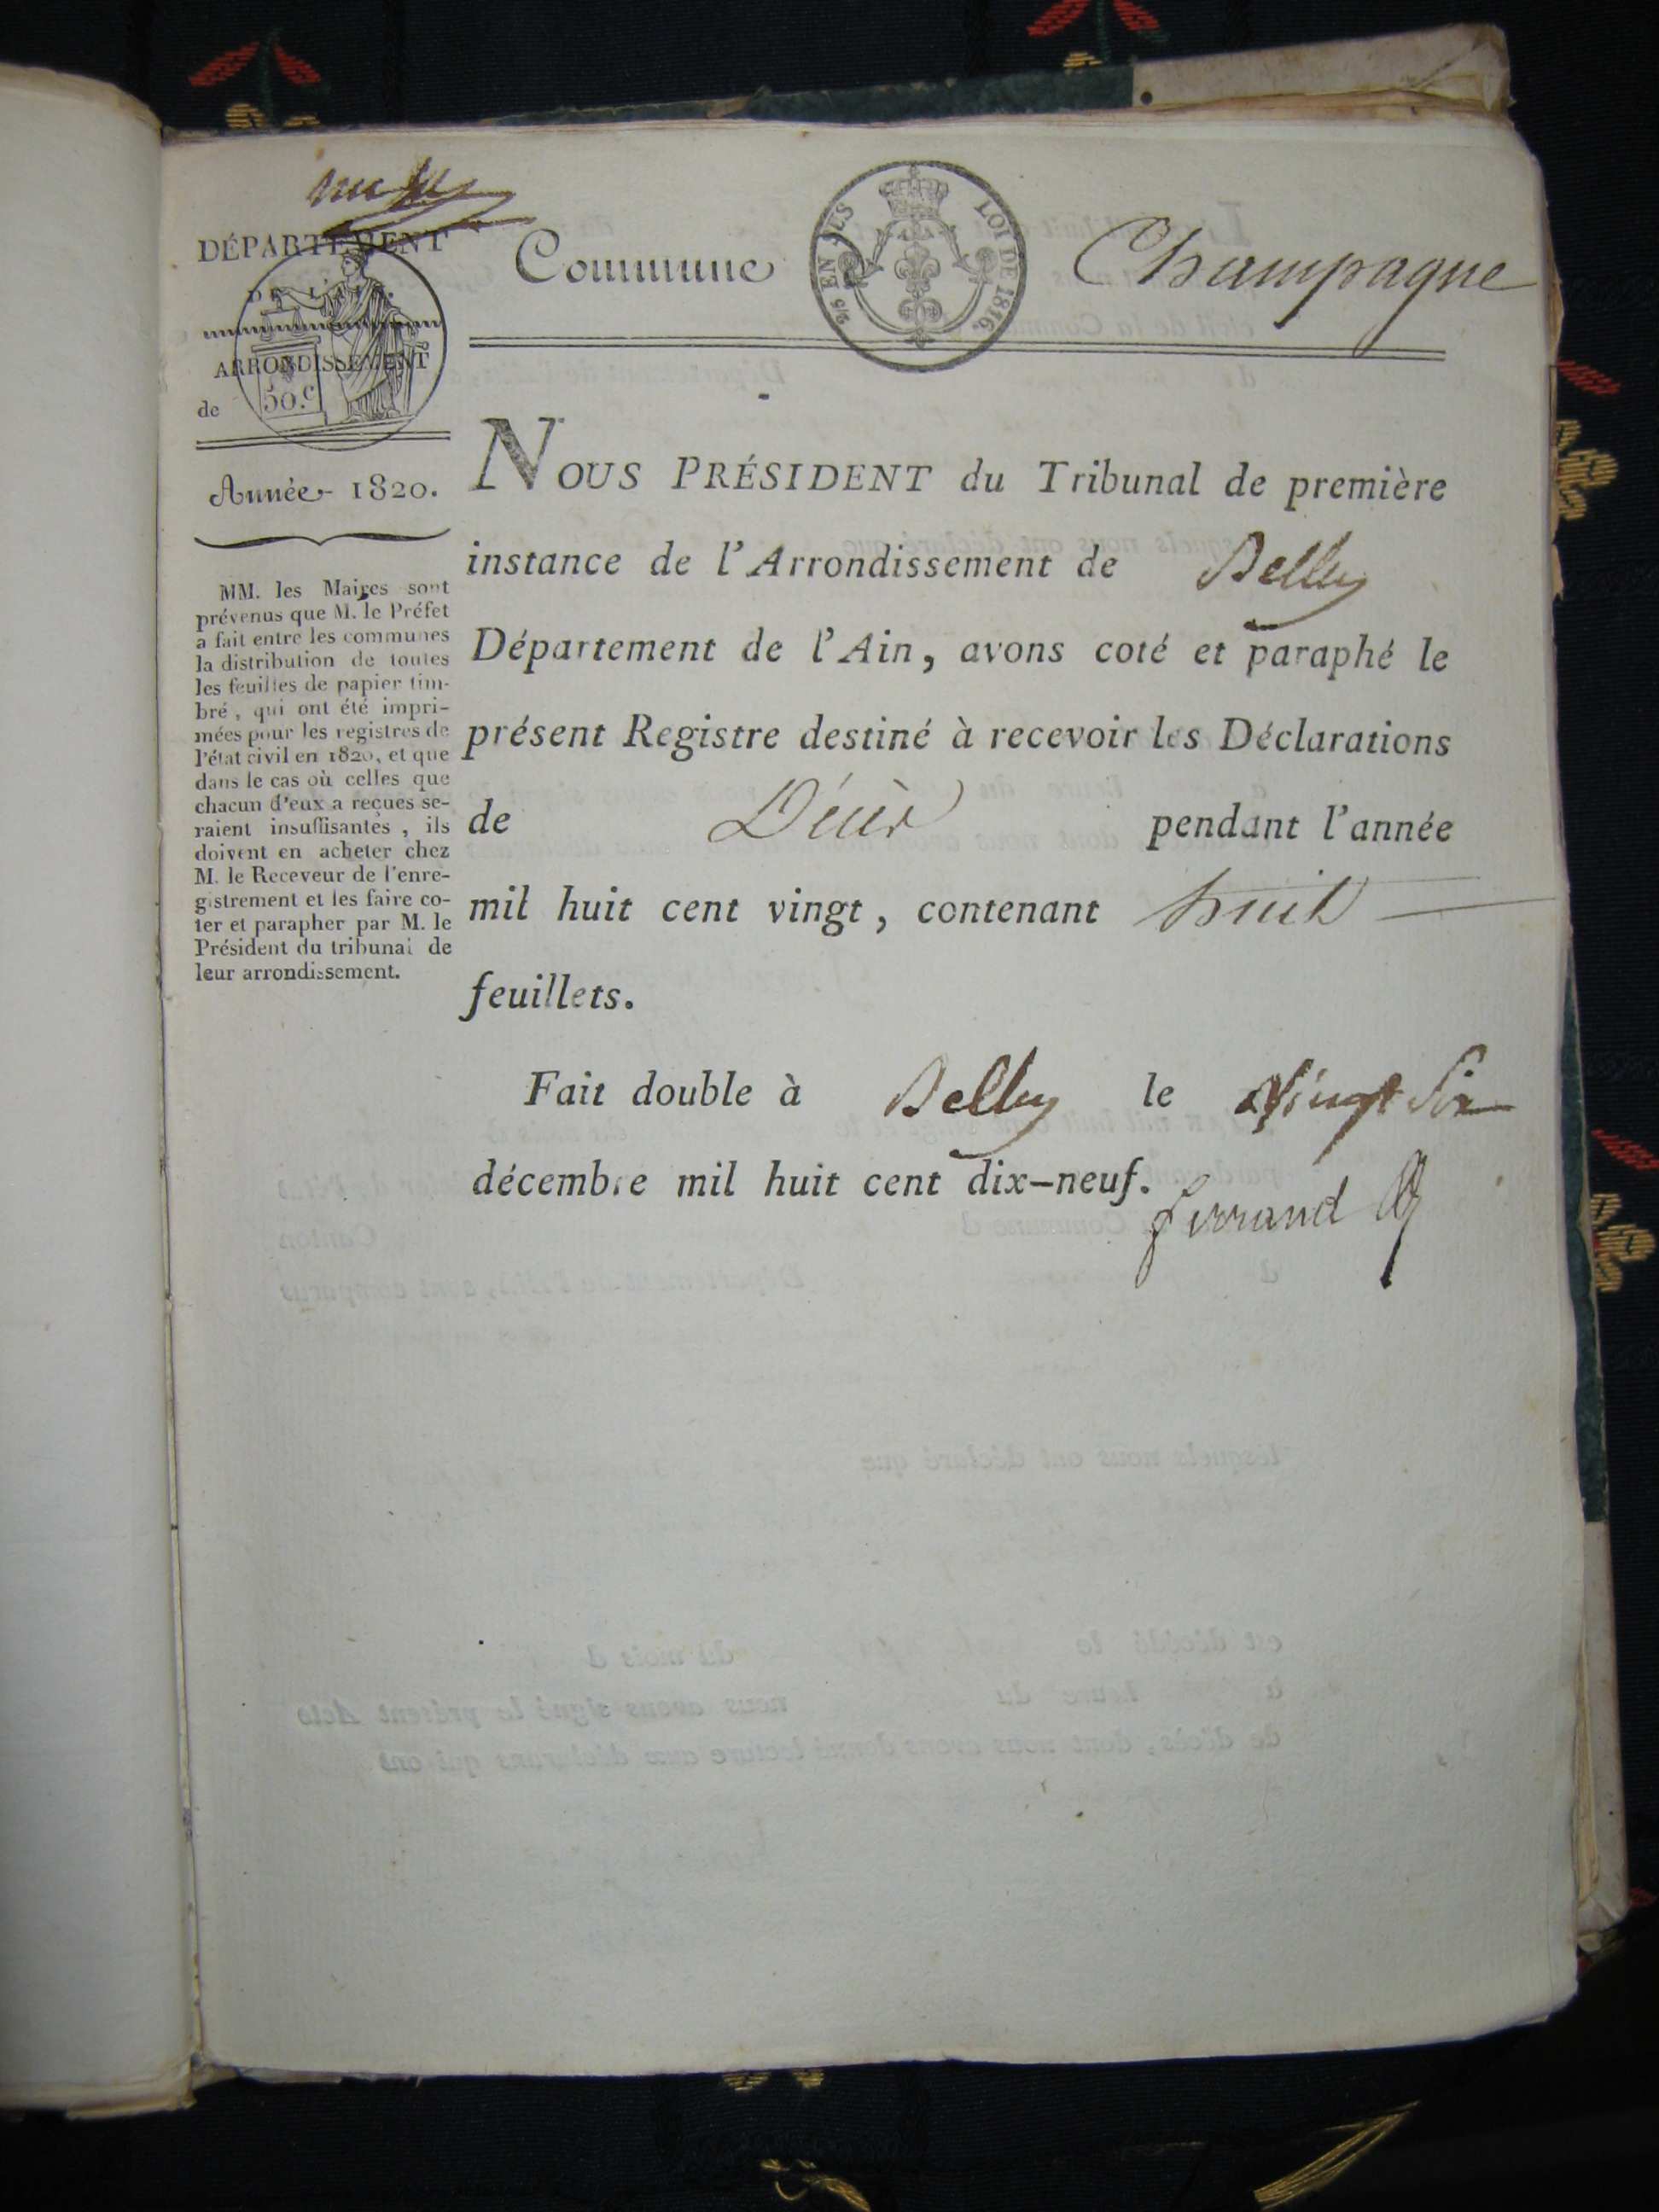 DÉPARTEMENT
DE L'AIN.
ARRONDISSEMENT
de
50.c
Année 1820.
MM. les Maires sont
prévenus que M. le Préfet
a fait entre les communes
la distribution de toutes
les feuilles de papier tim-
bré, qui ont été impri-
mées pour les registres de
l'état civil en 1820, et que
dans le cas où celles que
chacun d'eux a reçues se-
raient insuffisantes, ils
doivent en acheter chez
M. le Receveur de l'enre-
gistrement et les faire co-
ter et parapher par M. le
Président du tribunal de
leur arrondissement.
Commune Champagne
LOI DE 1816.
NOUS PRÉSIDENT du Tribunal de première
instance de l'Arrondissement de Belley
Département de l'Ain, avons coté et paraphé le
présent Registre destiné à recevoir les Déclarations
de Décès pendant l'année
mil huit cent vingt, contenant huit
feuillets.
Fait double à Belley le vingt six
décembre mil huit cent dix-neuf.
ferrand